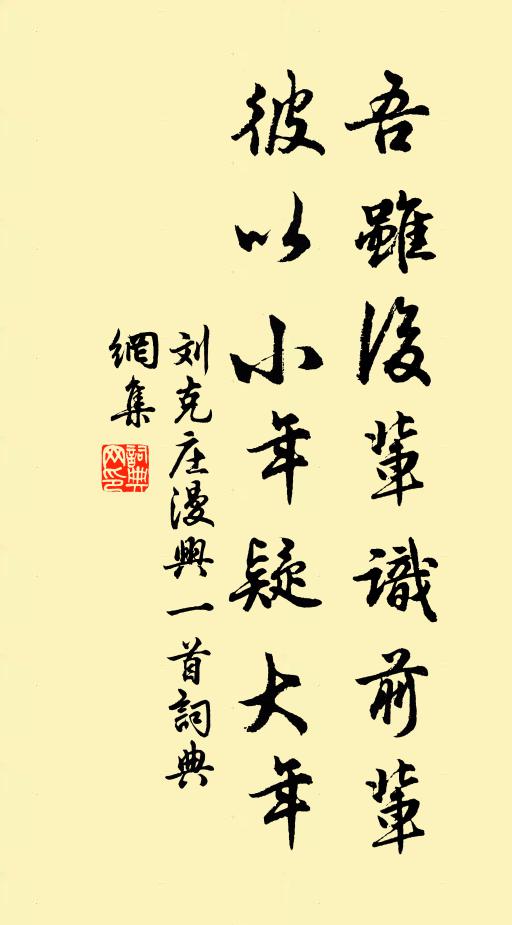 吾雖後輩識前輩
彼以小年疑大年
刘克庄漫興一首詞典
網集
詞典网印